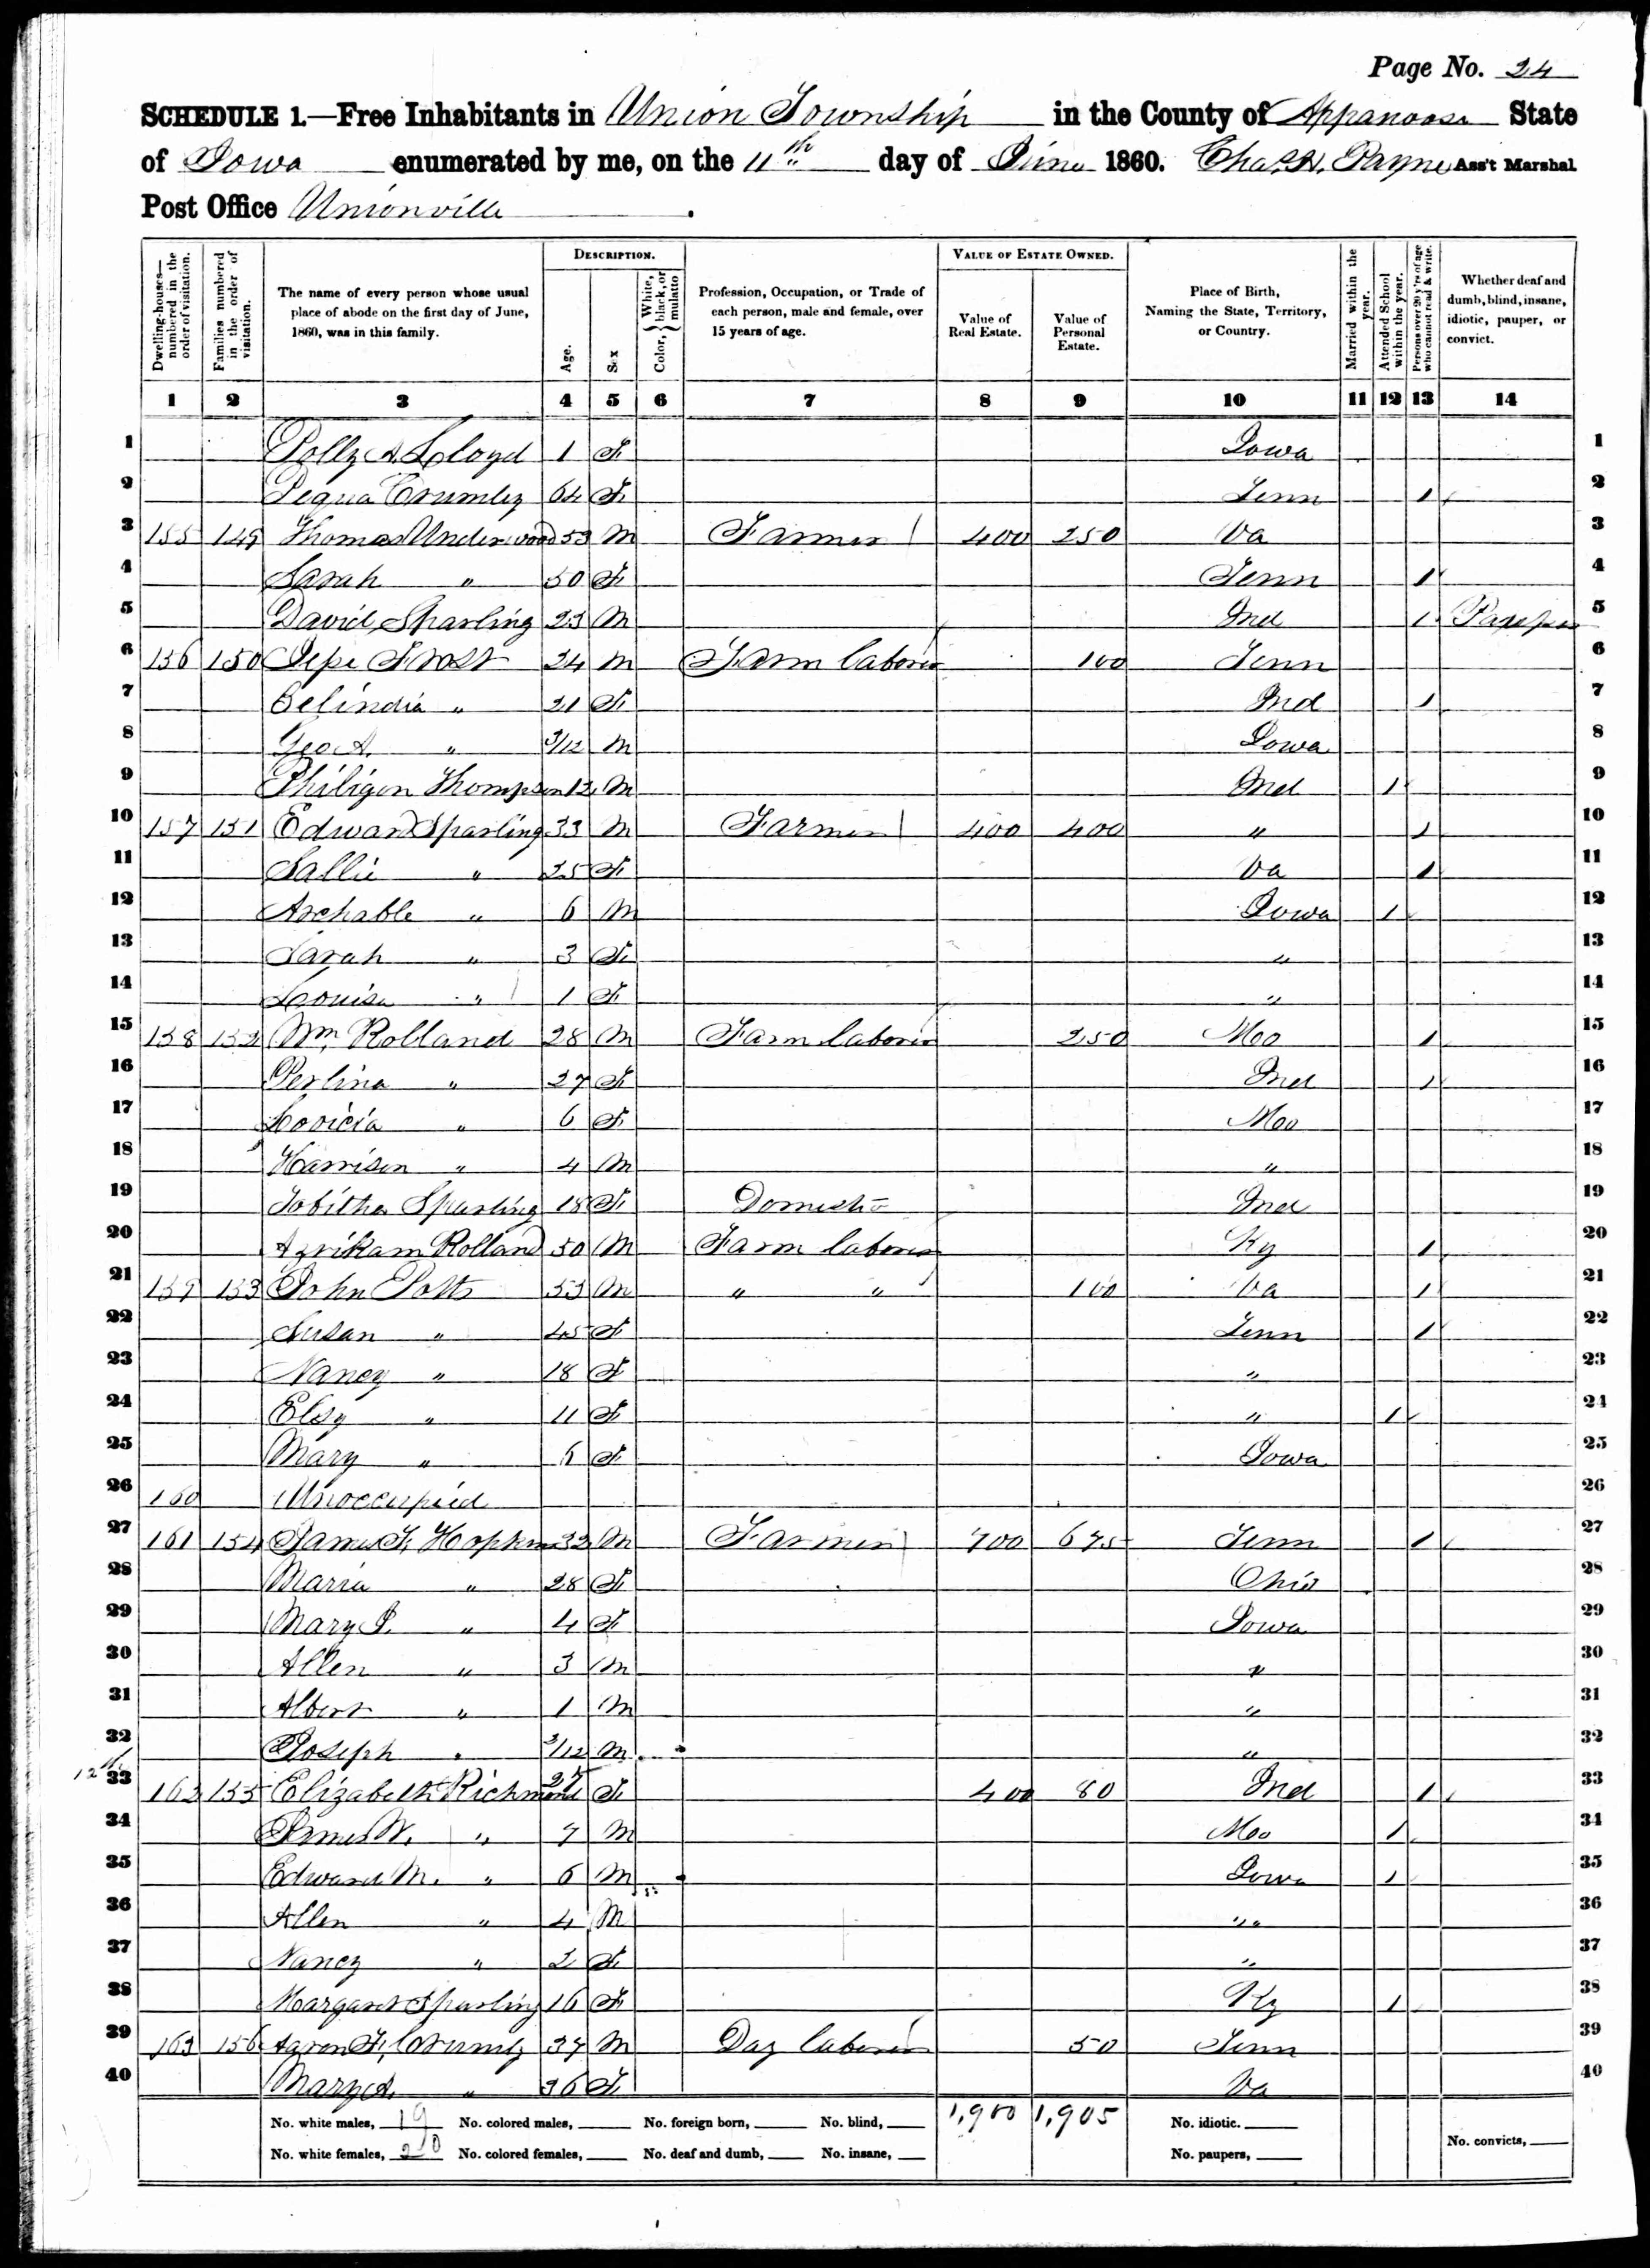 Page No. 24
SCHEDULE 1.—Free Inhabitants in Union Township in the County of Appanoose State
of Iowa enumerated by me, on the 11th day of June 1860. Chas. H. Payne Ass't Marshal
Post Office Unionville.
Dwelling-houses—numbered in the order of visitation. Families numbered in the order of visitation. The name of every person whose usual place of abode on the first day of June, 1860, was in this family. DESCRIPTION. Age. Sex Color, White, black, or mulatto Profession, Occupation, or Trade of each person, male and female, over 15 years of age. VALUE OF ESTATE OWNED. Value of Real Estate. Value of Personal Estate. Place of Birth, Naming the State, Territory, or Country. Married within the year. Attended School within the year. Persons over 20 y'rs of age who cannot read & write. Whether deaf and dumb, blind, insane, idiotic, pauper, or convict.
1 2 3 4 5 6 7 8 9 10 11 12 13 14
1 Polly A. Lloyd 1 F Iowa 1
2 Crumley 64 F Tenn 1 2
3 155 149 Thomas Underwood 53 M Farmer 400 250 Va 3
4 Sarah " 50 F Tenn 1 4
5 David Sparling 23 M Ind 1 Pauper 5
6 156 150 Frost 24 M Farm laborer 100 Tenn 6
7 Belindia " 21 F Ind 1 7
8 Geo A. " 3/12 M Iowa 8
9 Thompson 12 M Ind 1 9
10 157 151 Edward Sparling 33 M Farmer 400 400 " 1 10
11 Sallie " 25 F Va 1 11
12 Archable " 6 M Iowa 1 12
13 Sarah " 3 F " 13
14 Louisa " 1 F " 14
15 158 152 Wm. Rolland 28 M Farm laborer 250 Moo 1 15
16 Perlina " 27 F Ind 1 16
17 Lovicia " 6 F Moo 17
18 Harrison " 4 M " 18
19 Tabitha Sparling 18 F Domestic Ind 19
20 Azrikam Rolland 50 M Farm laborer Ky 1 20
21 159 153 John Potts 53 M " " 100 Va 1 21
22 Susan " 45 F Tenn 1 22
23 Nancy " 18 F " 23
24 Elsy " 11 F " 1 24
25 Mary " 6 F Iowa 25
26 160 Unoccupied 26
27 161 154 James F. Hopkins 32 M Farmer 700 675 Tenn 1 27
28 Maria " 28 F Ohio 28
29 Mary J. " 4 F Iowa 29
30 Allen " 3 M " 30
31 Albert " 1 M " 31
32 Joseph " 3/12 M " 32
12th
33 162 155 Elizabeth Richmond 27 F 400 80 Ind 1 33
34 James W. " 7 M Moo 1 34
35 Edward M. " 6 M Iowa 1 35
36 Allen " 4 M " 36
37 Nancy " 2 F " 37
38 Margaret Sparling 16 F Ky 1 38
39 163 156 Aaron F. Crumly 37 M Day laborer 50 Tenn 39
40 Mary A. " 36 F Va 40
No. white males, 19 No. colored males, No. foreign born, No. blind, 1,900 1,905 No. idiotic.
No. white females, 20 No. colored females, No. deaf and dumb, No. insane, No. paupers, No. convicts,